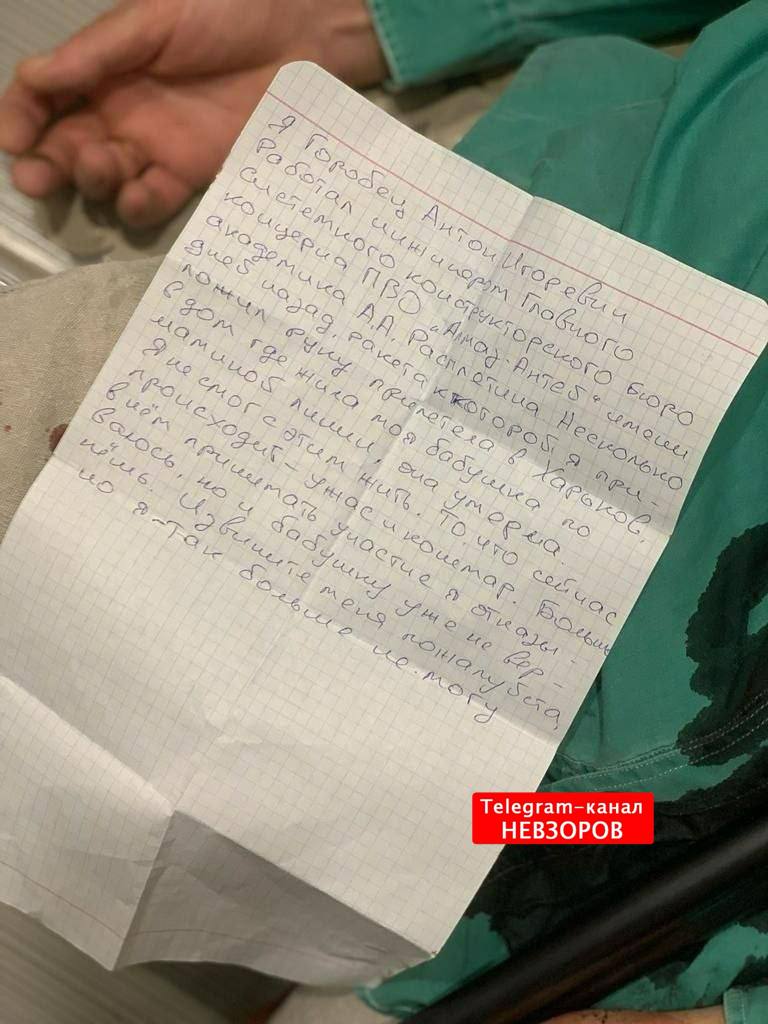 Я Горобец Антон Игоревич
Работал инженером Главного
системного конструкторского бюро
концерна ПВО "Алмаз-Антей" имени
академика А.А. Расплетина Несколько
дней назад, ракета к которой я при-
ложил руку прилетела в Харьков.
в дом где жила моя бабушка по
маминой линии, она умерла.
Я не смог с этим жить. То, что сейчас
происходит - ужас и кошмар. Больше
в нём принимать участие я отказы-
валось, но и бабушку уже не вер-
нёшь. Извините меня пожалуйста,
но я-так больше не могу
Telegram-канал
НЕВЗОРОВ